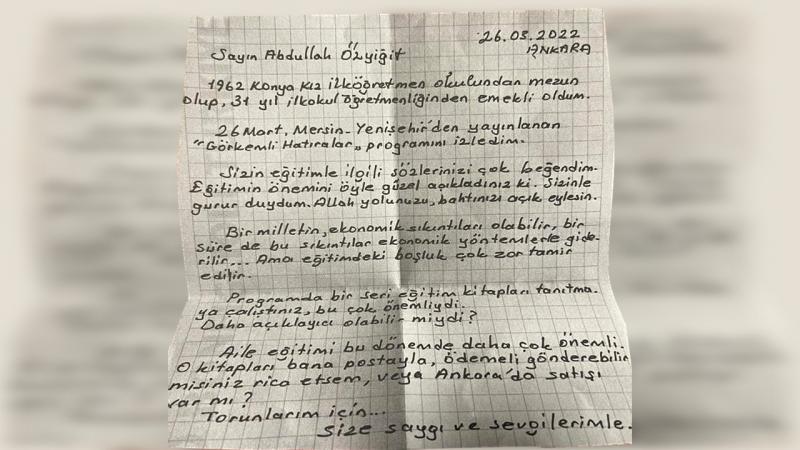 26.03.2022
ANKARA
Sayın Abdullah Özyiğit
1962 Konya Kız ilköğretmen okulundan mezun
olup, 31 yıl ilkokul öğretmenliğinden emekli oldum.
26 Mart, Mersin-Yenişehir'den yayınlanan
"Görkemli Hatıralar„ programını izledim.
Sizin eğitimle ilgili sözlerinizi çok beğendim.
Eğitimin önemini öyle güzel açıkladınız ki. Sizinle
gurur duydum. Allah yolunuzu, bahtınızı açık eylesin.
Bir milletin, ekonomik sıkıntıları olabilir, bir
süre de bu sıkıntılar ekonomik yöntemlerle gide-
rilir... Ama eğitimdeki boşluk çok zor tamir
edilir.
Programda bir seri eğitim kitapları tanıtma.
ya çalıştınız, bu çok önemliydi.
Daha açıklayıcı olabilir miydi?
Aile eğitimi bu dönemde daha çok önemli.
O kitapları bana postayla, ödemeli gönderebilir
misiniz rica etsem, veya Ankara'da satışı
var mı?
Torunlarım için...
Size saygı ve sevgilerimle.